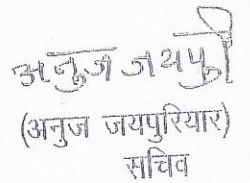 अनुज जयपुरी
(अनुज जयपुरियार)
सचिव